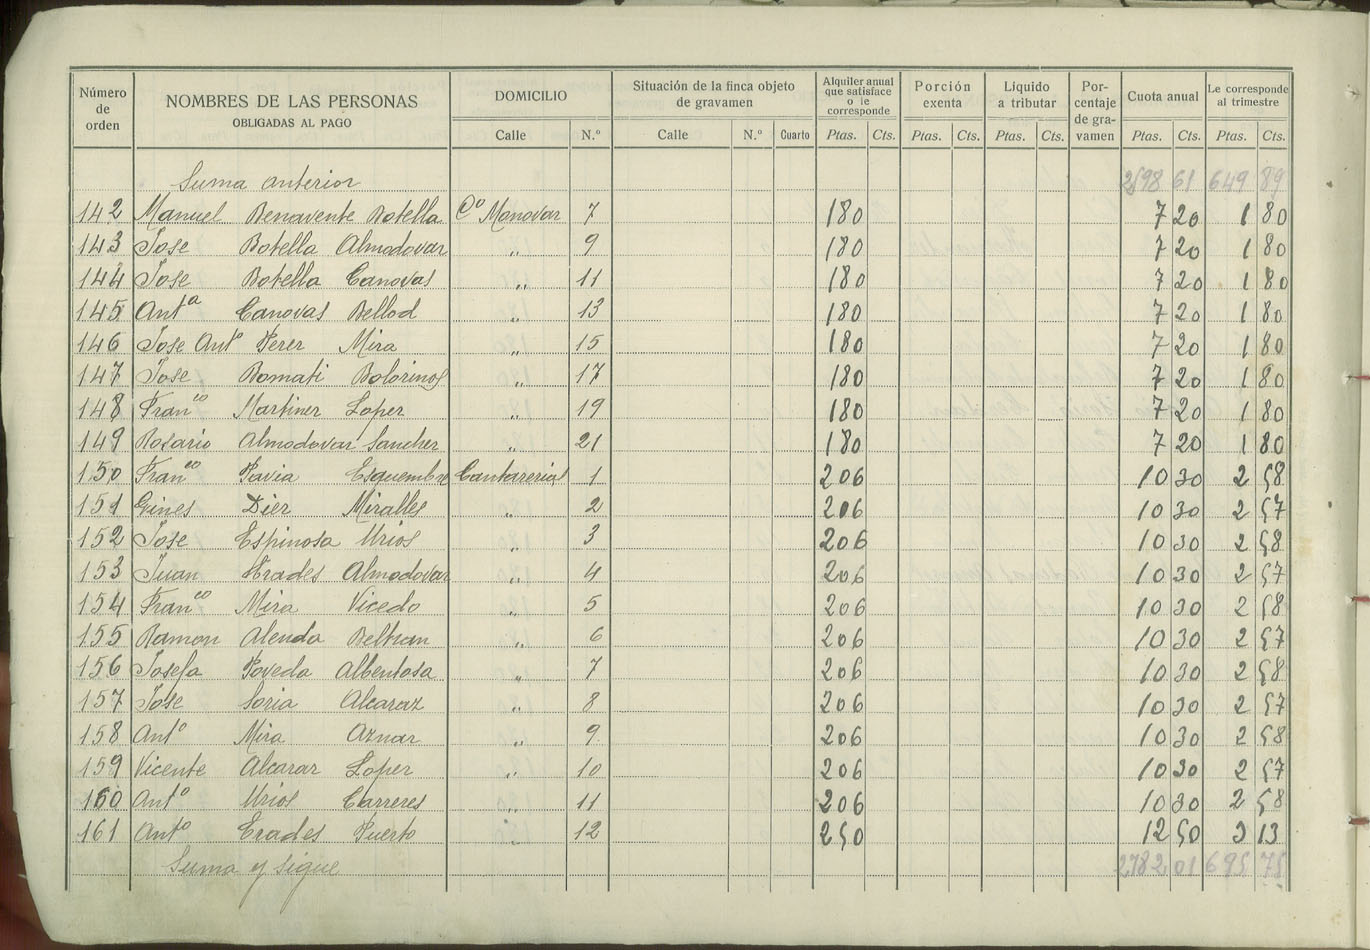 Número de orden NOMBRES DE LAS PERSONAS OBLIGADAS AL PAGO DOMICILIO Situación de la finca objeto de gravamen Alquiler anual que satisface o le corresponde Porción exenta Líquido a tributar Porcentaje de gravamen Cuota anual Le corresponde al trimestre
Calle N.º Calle N.º Cuarto Ptas. Cts. Ptas. Cts. Ptas. Cts. Ptas. Cts. Ptas. Cts.
Suma anterior 2598 61 649 89
142 Manuel Benavente Botella Cº Monovar 7 180 7 20 1 80
143 Jose Botella Almodovar " 9 180 7 20 1 80
144 Jose Botella Canovas " 11 180 7 20 1 80
145 Antª Canovas Bellod " 13 180 7 20 1 80
146 Jose Antº Perez Mira " 15 180 7 20 1 80
147 Jose Bomati Bolorinos " 17 180 7 20 1 80
148 Franco Martinez Lopez " 19 180 7 20 1 80
149 Rosario Almodovar Sanchez " 21 180 7 20 1 80
150 Franco Pavia Esquembre Cantarerias 1 206 10 30 2 58
151 Gines Diez Miralles " 2 206 10 30 2 57
152 Jose Espinosa Urios " 3 206 10 30 2 58
153 Juan Erades Almodovar " 4 206 10 30 2 57
154 Franco Mira Vicedo " 5 206 10 30 2 58
155 Ramon Alenda Beltran " 6 206 10 30 2 57
156 Josefa Poveda Albentosa " 7 206 10 30 2 58
157 Jose Soria Alcaraz " 8 206 10 30 2 57
158 Antº Mira Aznar " 9 206 10 30 2 58
159 Vicente Alcaraz Lopez " 10 206 10 30 2 57
160 Antº Urios Carreres " 11 206 10 30 2 58
161 Antº Erades Puerto " 12 250 12 50 3 13
Suma y sigue 2782 01 695 78